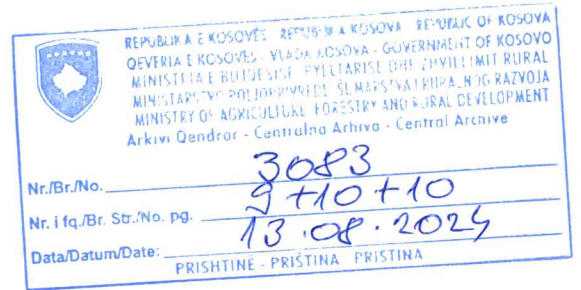 REPUBLIKA E KOSOVËS - REPUBLIKA KOSOVA - REPUBLIC OF KOSOVA
QEVERIA E KOSOVËS - VLADA KOSOVA - GOVERNMENT OF KOSOVO
MINISTRIA E BUJQËSISË PYLLTARISË DHE ZHVILLIMIT RURAL
MINISTARSTVO POLJOPRIVREDE ŠUMARSTVA I RURALNOG RAZVOJA
MINISTRY OF AGRICULTURE FORESTRY AND RURAL DEVELOPMENT
Arkivi Qendror - Centralna Arhiva - Central Archive
Nr./Br./No. 3083
Nr. i fq./Br. Str./No. pg. 9+10+10
Data/Datum/Date: 13.08.2024
PRISHTINË - PRIŠTINA PRISTINA